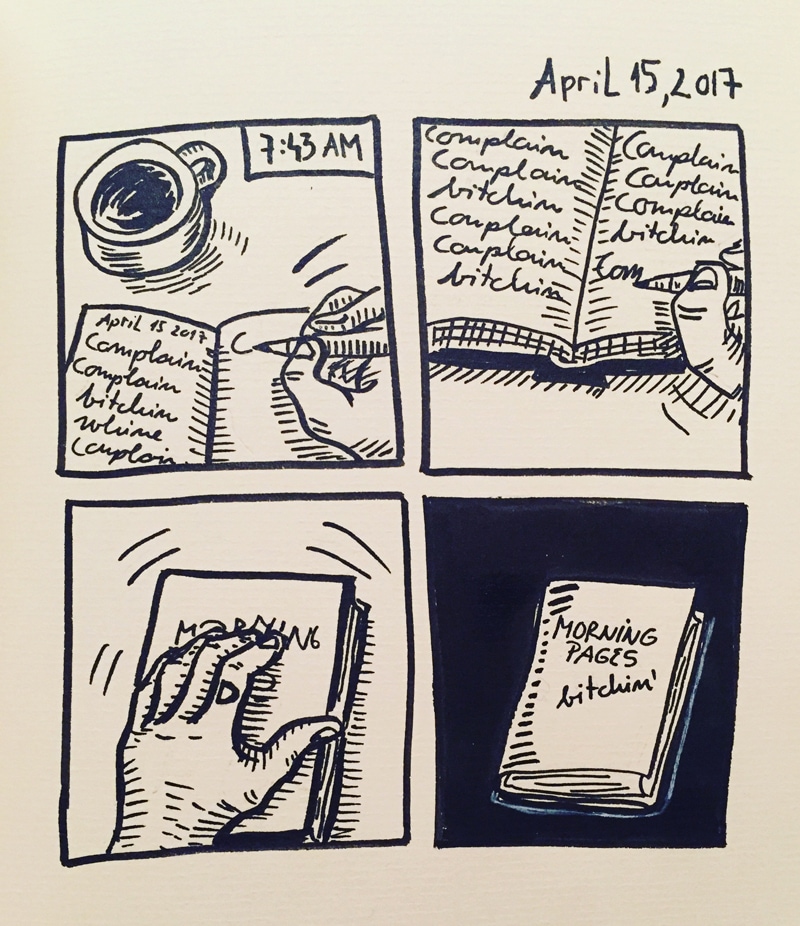 April 15, 2017
7:43 AM
April 15 2017
Complain
Complain
bitchin
whine
Complain
C
Complain
Complain
bitchin
Complain
Complain
bitchin
Complain
Complain
Complain
bitchin
Com
MORNING
MORNING
PAGES
bitchin'